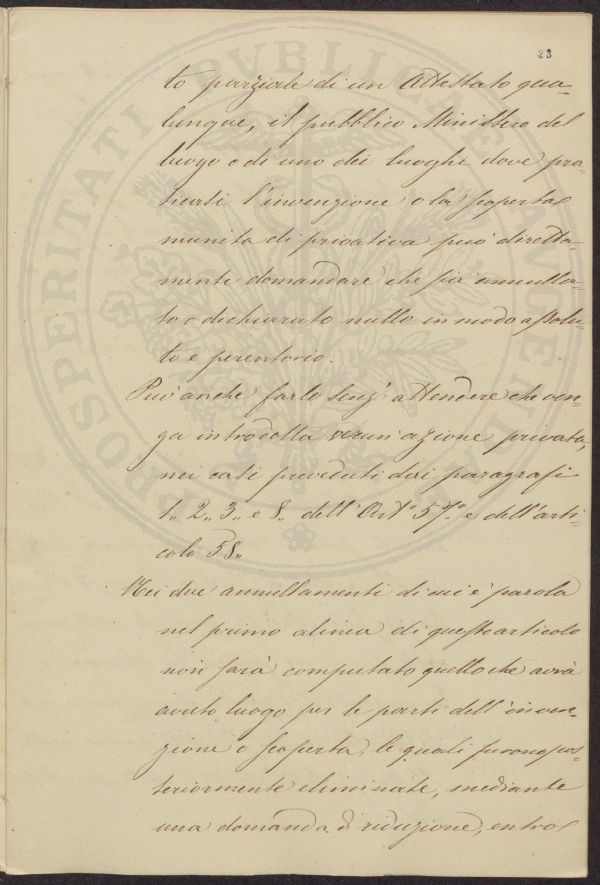 23
to parziale di un Attestato qua-
lunque, il pubblico Ministero del
luogo o di uno dei luoghi dove pra-
ticarsi l'invenzione o la scoperta
munita di privativa può diretta-
mente domandare che sia annulla-
to o dichiarato nullo in modo assolu-
to e perentorio.
Può anche farlo senz'attendere che ven-
ga introdotta verun'azione privata,
nei casi preveduti dai paragrafi
1,, 2,, 3,, e 8,, dell'Art.º 57.º e dell'arti-
colo 58,,
Nei due annullamenti di cui è parola
nel primo alinea di questo articolo
non sarà computato quello che avrà
avuto luogo per le parti dell'inven-
zione o scoperta, le quali furono pos-
teriormente eliminate, mediante
una domanda di riduzione, entro
PROSPERITATI PVBLICAE AVGENDAE